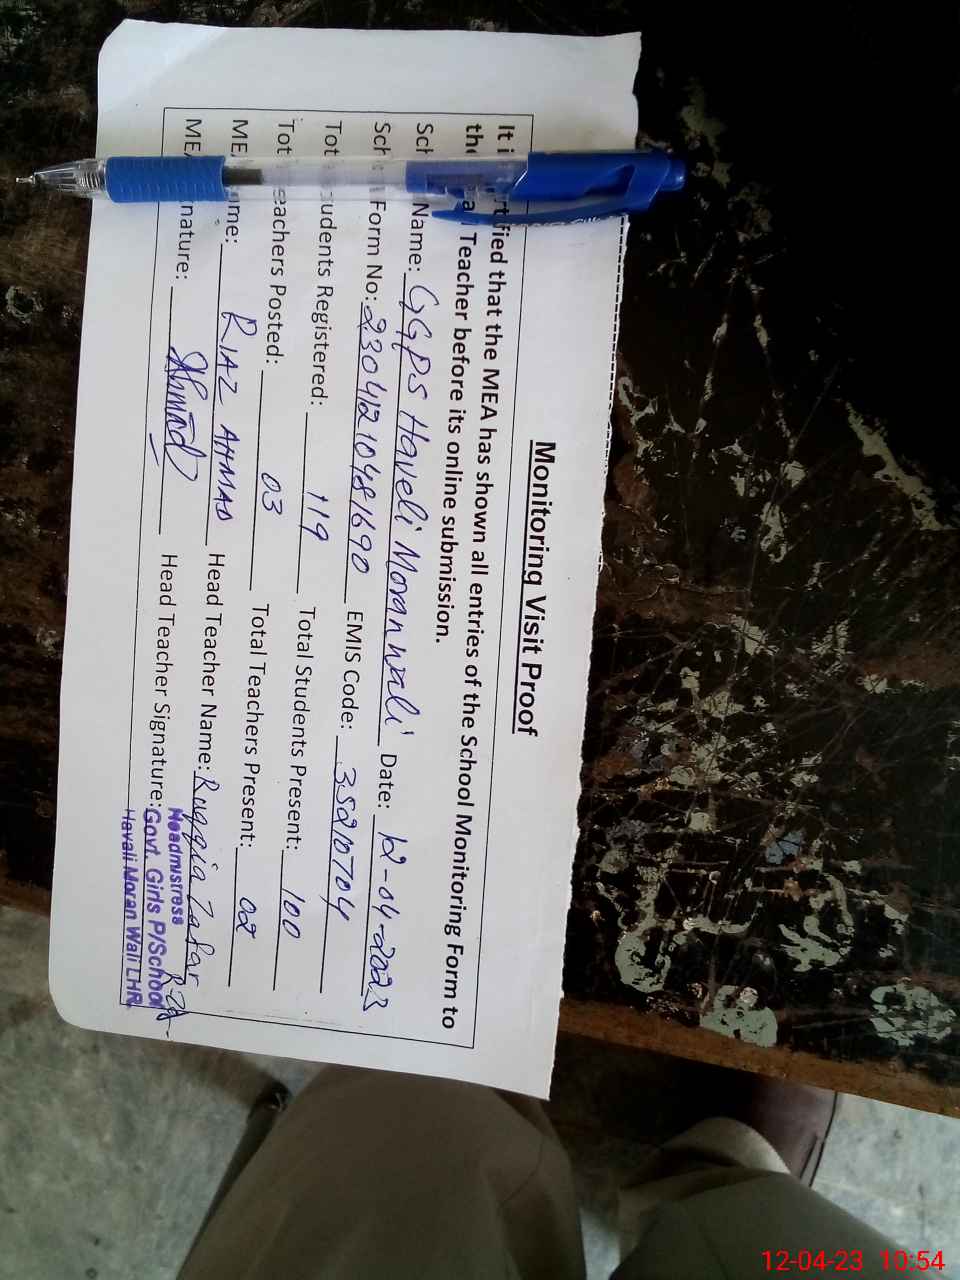 Monitoring Visit Proof
It i rtified that the MEA has shown all entries of the School Monitoring Form to
the a Teacher before its online submission.
Sch Name: GGPS Haveli Moran wali Date: 12-04-2023
Sch Form No: 23041210481690 EMIS Code: 35210704
Tot udents Registered: 119 Total Students Present: 100
Tot eachers Posted: 03 Total Teachers Present: 02
ME ame: RIAZ AHMAD Head Teacher Name: Ruqqia Zafar
MEA nature: Ahmad Head Teacher Signature:
Headmistress
Govt. Girls P/School
Havali Moran Wali LHR
12-04-23 10:54